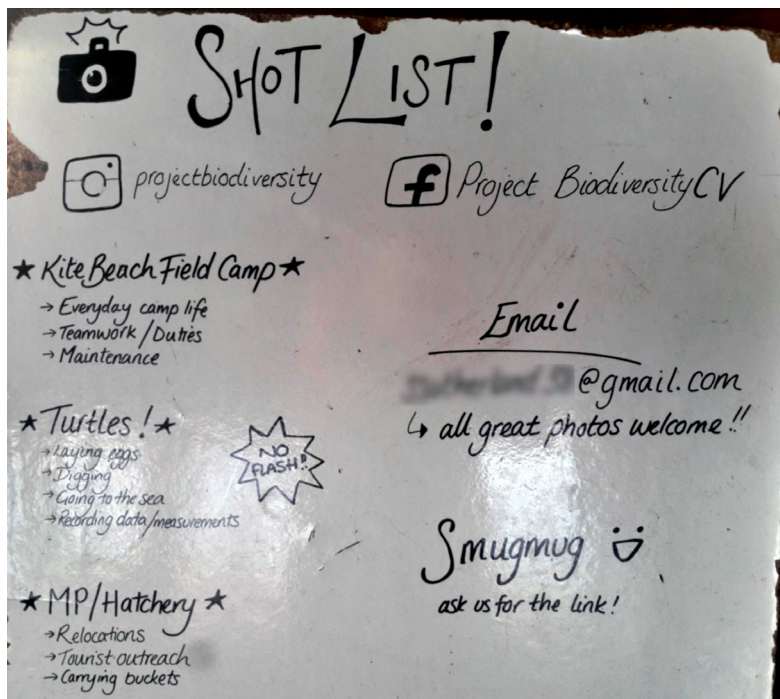 SHOT LIST!
projectbiodiversity
Project BiodiversityCV
★ Kite Beach Field Camp ★
→ Everyday camp life
→ Teamwork / Duties
→ Maintenance
★ Turtles! ★
→ Laying eggs
→ Digging
→ Going to the sea
→ Recording data/measurements
NO
FLASH!!
★ MP/Hatchery ★
→ Relocations
→ Tourist outreach
→ Carrying buckets
Email
@gmail.com
↳ all great photos welcome!!
Smugmug
ask us for the link!